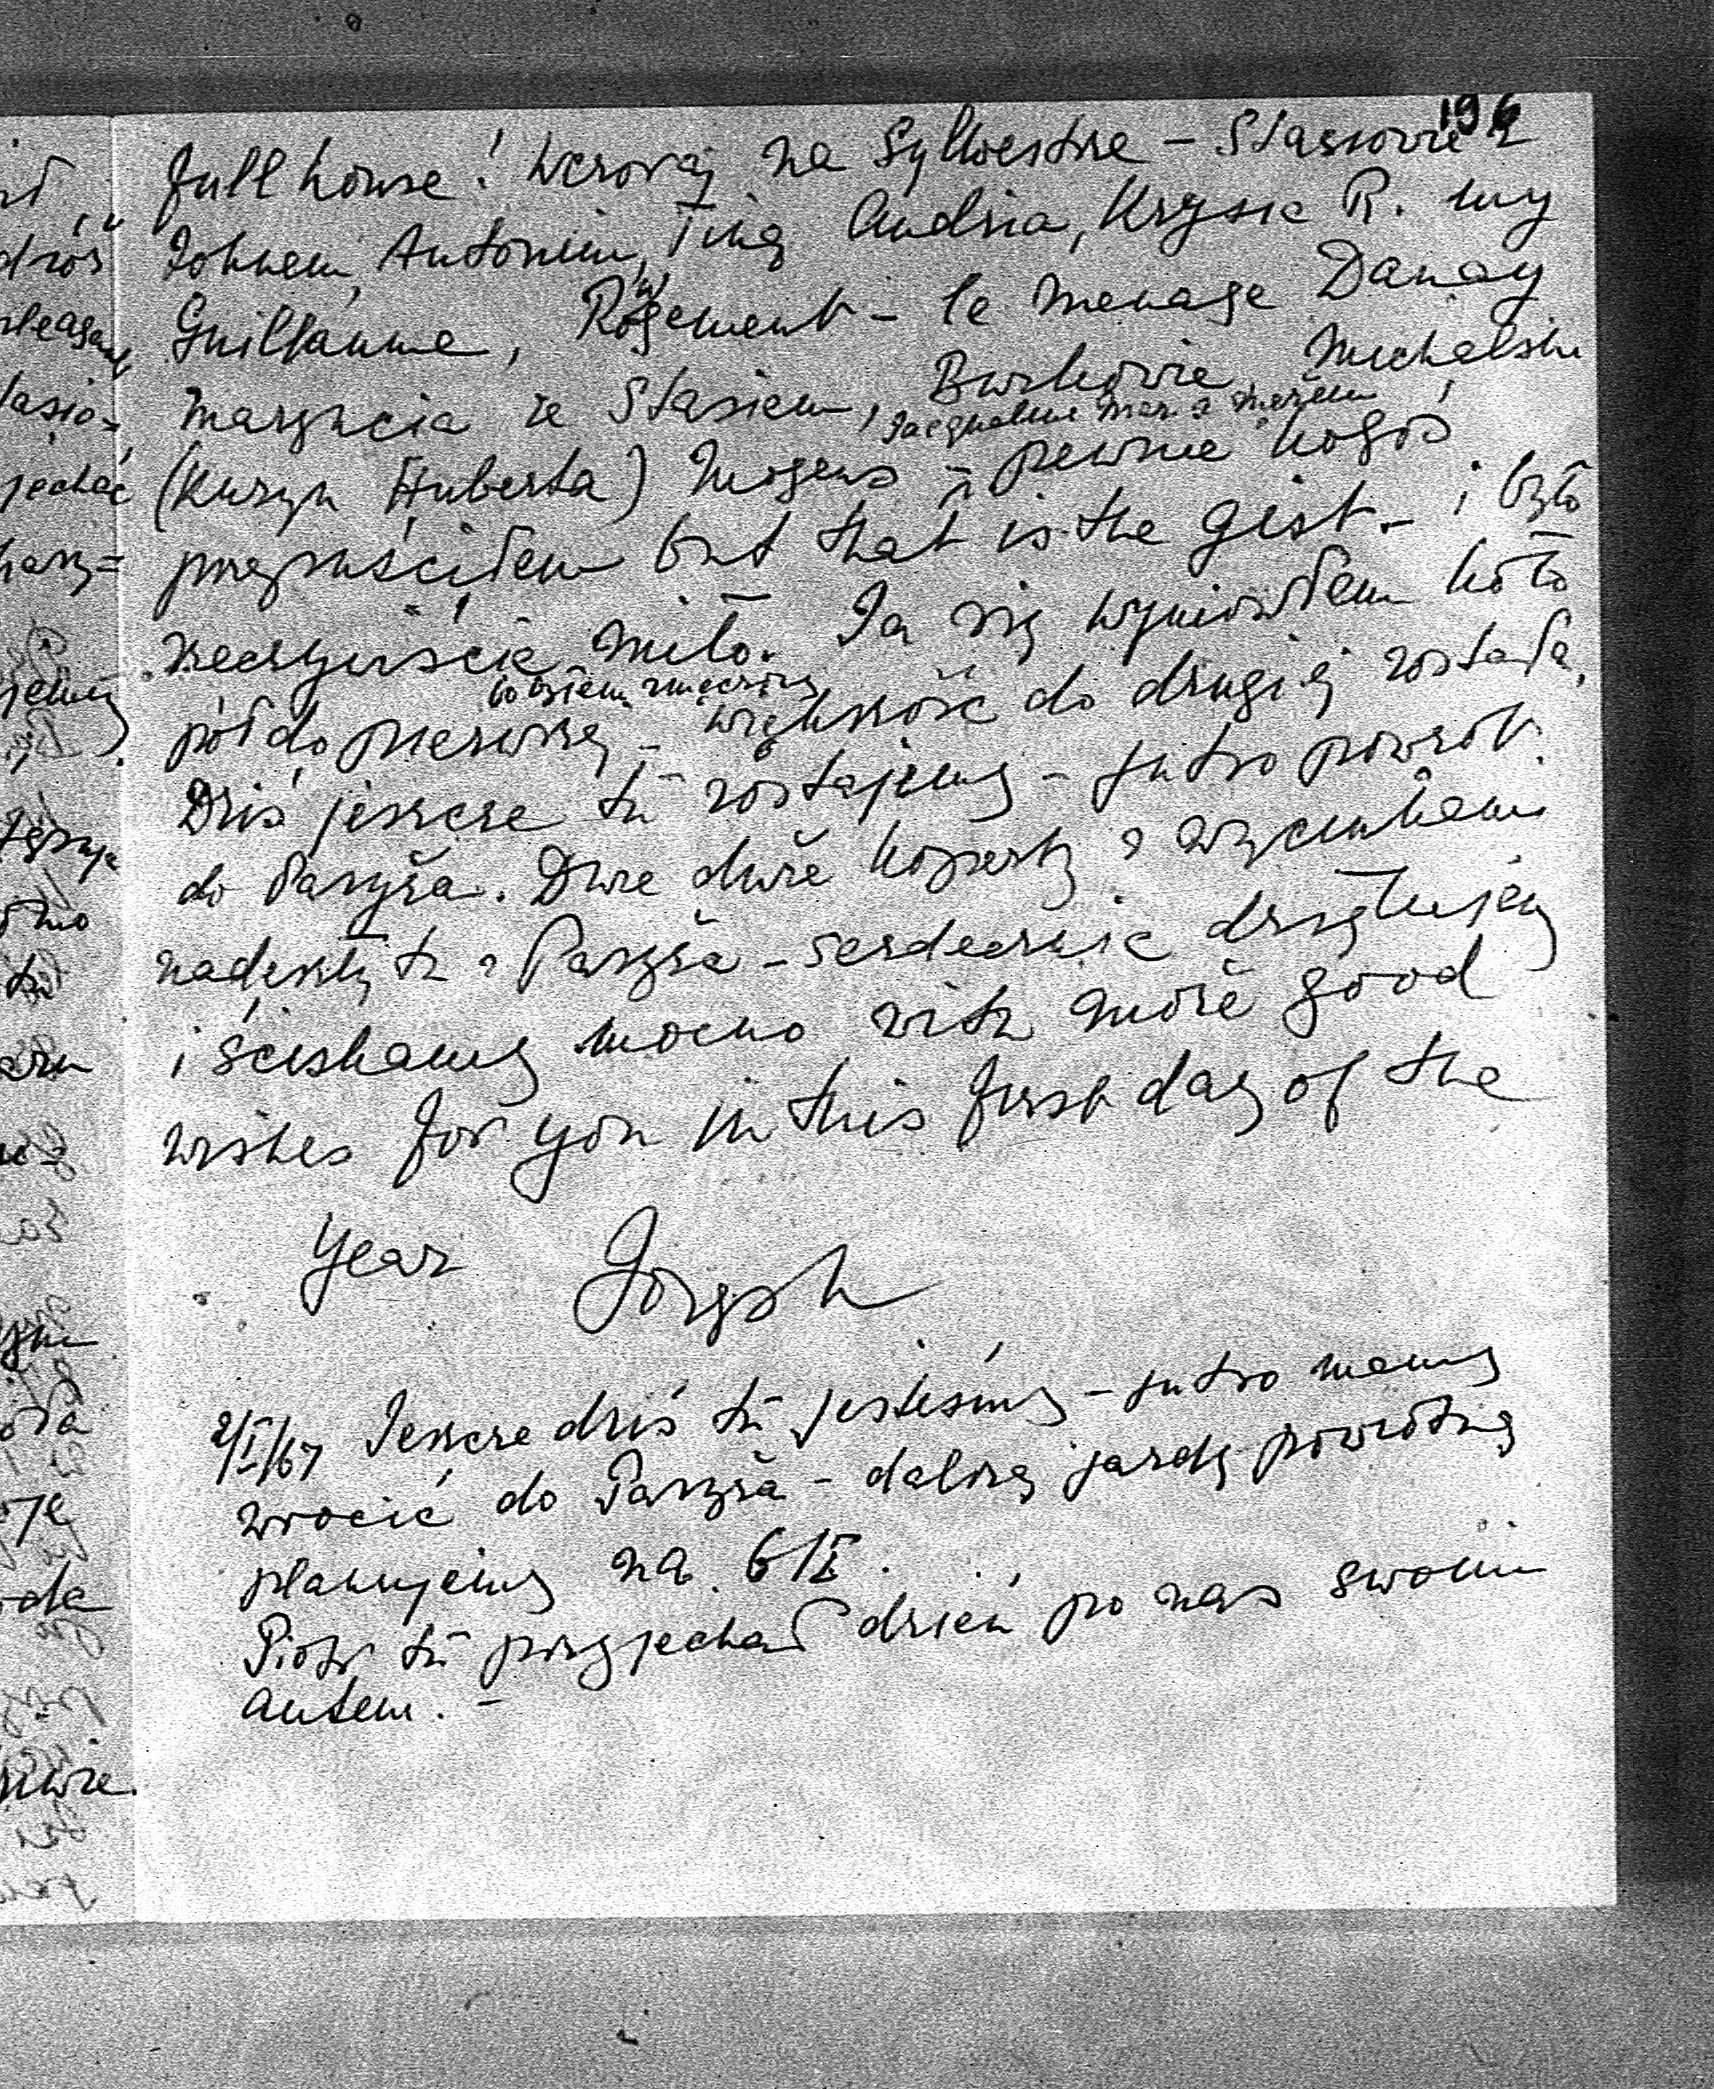 196
full house! Wczoraj na Sylwestrze – Stasiowie z
Johnem, Antonim, Tiną Andzia, Krysie R. my
Guillaume, Rogement – le menage Danay
Marysia ze Stasiem, Burkowie, Michalski
Jacqueline Mar. z mężem
(Kuzyn Huberta) Mogens – pewnie kogoś
przepuściłem but that is the gist – i było
rzeczywiście miło. Ja się wyniosłem koło
bo byłem zmęczony
pół do pierwszej – większość do drugiej została.
Dziś jeszcze tu zostajemy – jutro powrót
do Paryża. Dwie duże koperty z wycinkami
nadeszły tu z Paryża – serdecznie dziękujemy
i ściskamy mocno with more good
wishes for you in this first day of the
Year Józysh
2/I/67 Jeszcze dziś tu jesteśmy – jutro mamy
wrócić do Paryża – dalszą jazdę powrotną
planujemy na 6/I.
Piotr tu przyjechał dzień po nas swoim
autem. –